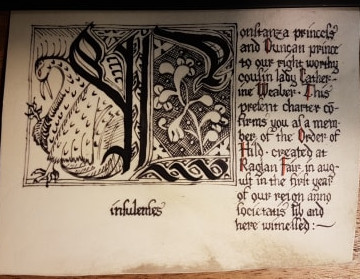 onſtanza princeſs
and Duncan prince
to our right worthy
couſin lady Cather
ine Weaver. This
preſent charter co
firms you as a mem
ber of the Order of
Hild created at
Raglan Fair in aug
uſt in the first year
of our reign anno
societatis and
here witneſſed :~